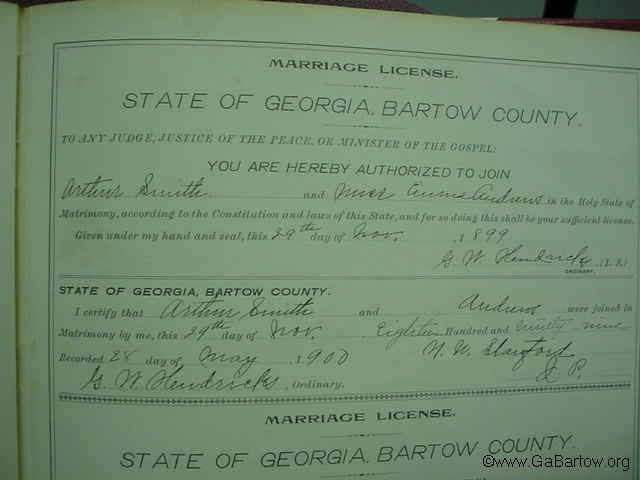 MARRIAGE LICENSE.
STATE OF GEORGIA, BARTOW COUNTY.
TO ANY JUDGE, JUSTICE OF THE PEACE, OR MINISTER OF THE GOSPEL:
YOU ARE HEREBY AUTHORIZED TO JOIN
Arthur Smith and Miss Emma Andrews in the Holy State of
Matrimony, according to the Constitution and laws of this State, and for so doing this shall be your sufficient license.
Given under my hand and seal, this 29th day of Nov. , 1899
G. W. Hendricks (L. S.)
ORDINARY.
STATE OF GEORGIA, BARTOW COUNTY.
I certify that Arthur Smith and Andrews were joined in
Matrimony by me, this 29th day of Nov. , Eighteen Hundred and ninety-nine
Recorded 28 day of May , 1900
J. P.
G. W. Hendricks, Ordinary.
MARRIAGE LICENSE.
STATE OF GEORGIA, BARTOW COUNTY.
©www.GaBartow.org